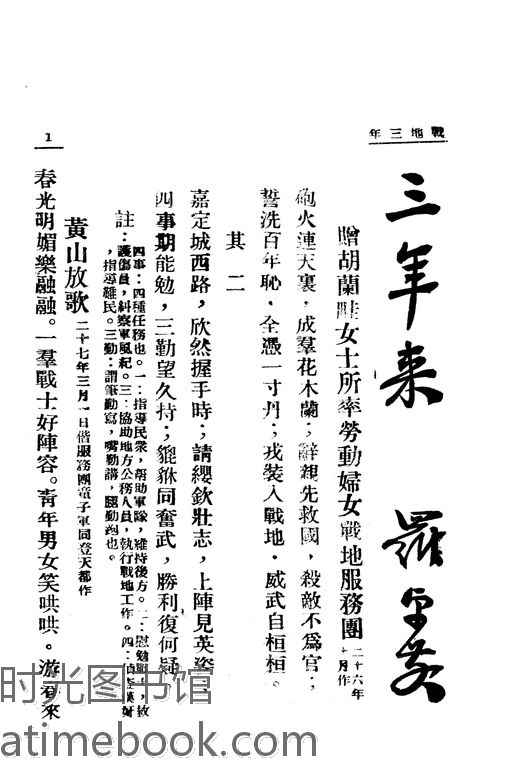 戰地三年
三年來　羅卓英
贈胡蘭畦女士所率勞動婦女戰地服務團 二十六年十月作
砲火連天裏，成羣花木蘭；辭親先救國，殺敵不爲官；
誓洗百年恥，全憑一寸丹；戎裝入戰地，威武自桓桓。
其二
嘉定城西路，欣然握手時；請纓欽壯志，上陣見英姿；
四事期能勉，三勤望久持；貔貅同奮武，勝利復何疑
註：四事：四種任務也。一：指導民衆，幫助軍隊，維持後方。二：慰勉戰士，救
護傷員，糾察軍風紀。三：協助地方公務人員，執行戰地工作。四：偵查漢奸
，指導難民。三勤：謂筆勤寫，嘴勤講，腿勤跑也。
黃山放歌 二十七年三月一日偕服務團童子軍同登天都作
春光明媚樂融融。一羣戰士好陣容。青年男女笑哄哄。游春來.
1
时光图书馆
atimebook.com